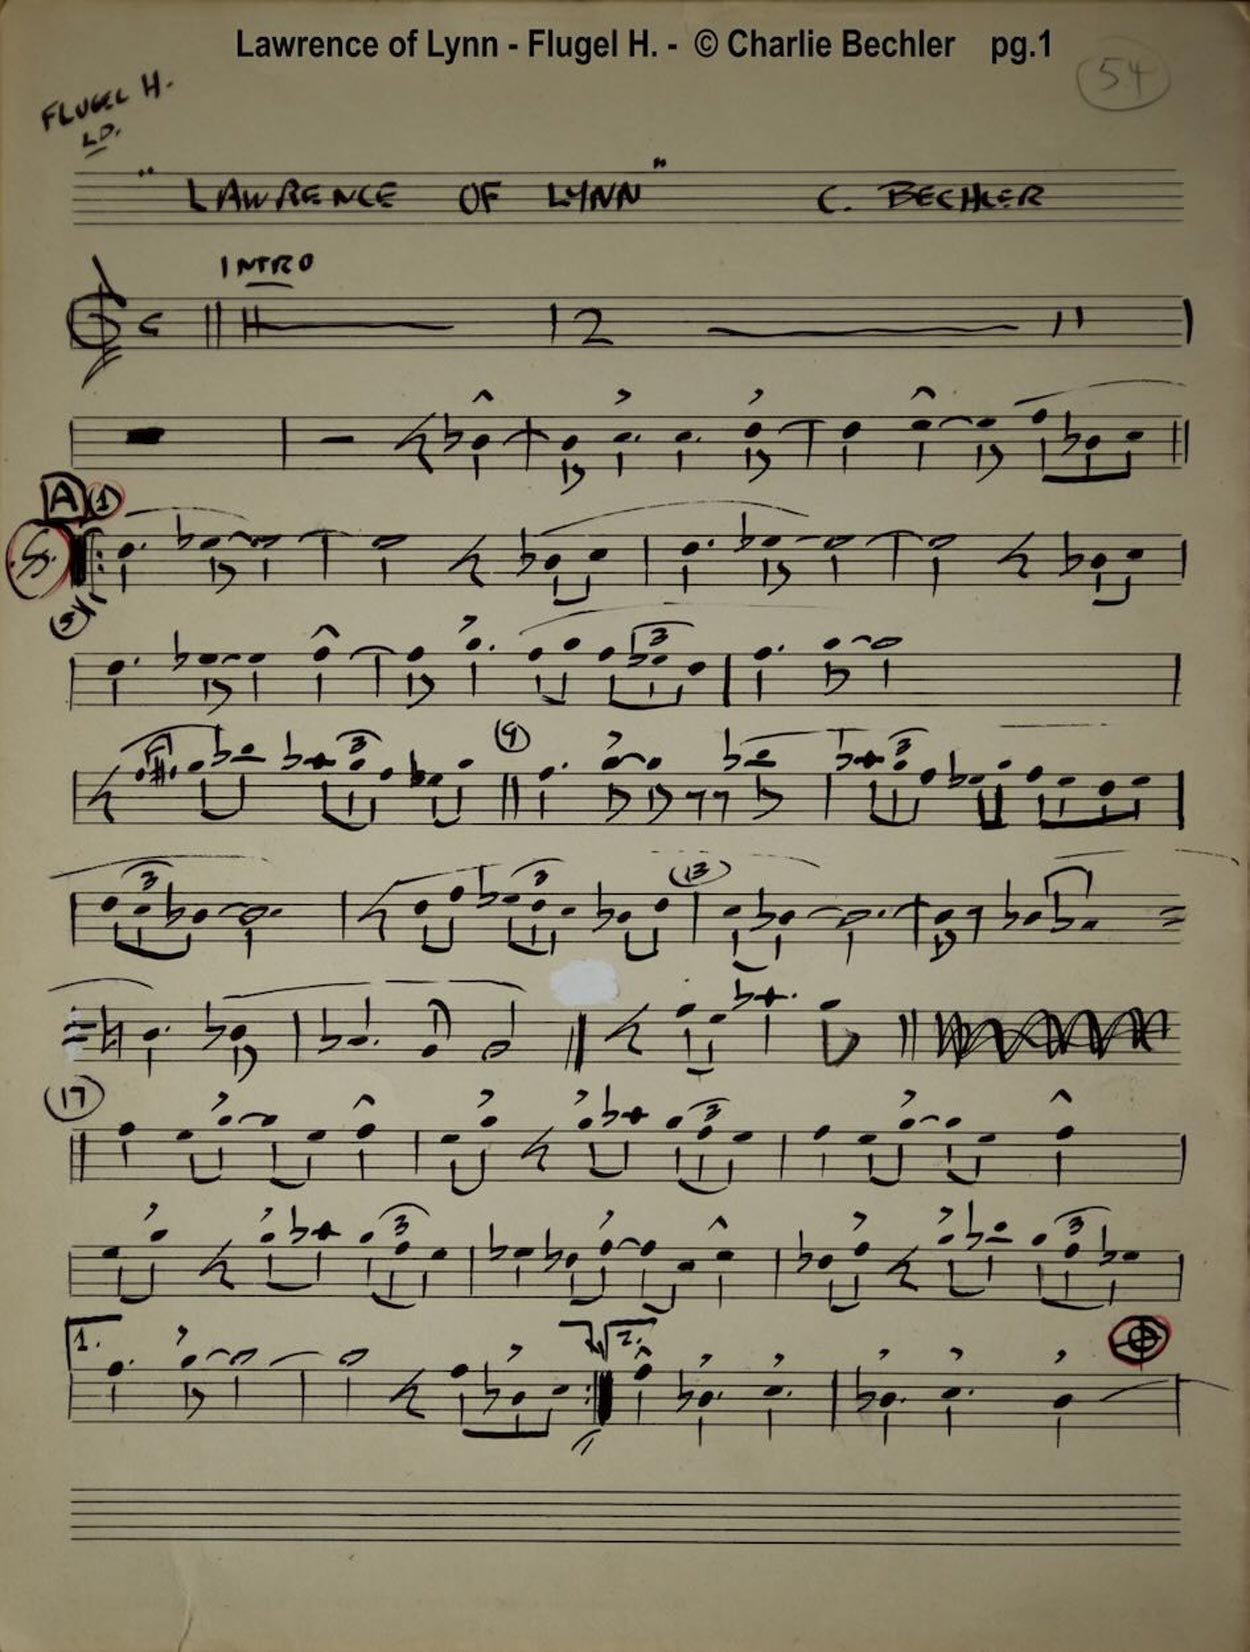 Lawrence of Lynn - Flugel H. - © Charlie Bechler pg.1
54
FLUGEL H.
LD.
"LAWRENCE OF LYNN" C. BECHLER
INTRO
2
A 1
5
3
3 9 3
3 3 13
17
3
3 3
1. 2.